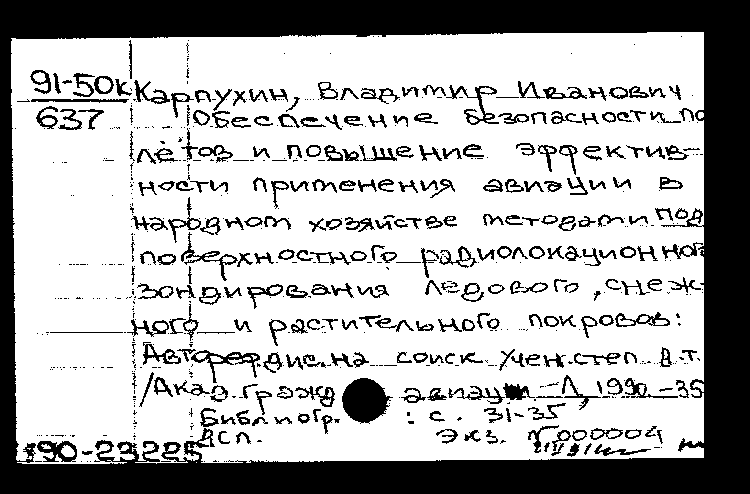 91-50к Карпухин, Владимир Иванович
637 Обеспечение безопасности по
лётов и повышение эффектив-
ности применения авиации в
народном хозяйстве методами под
поверхностного радиолокационного
зондирования ледового, снеж-
ного и растительного покровов:
Автореф. дис. на соиск учен. степ. д.т.
/Акад. гражд. авиации - Л, 1990. - 35
Библиогр. : с. 31-35
Дсп. Экз. N 000004
90-23225